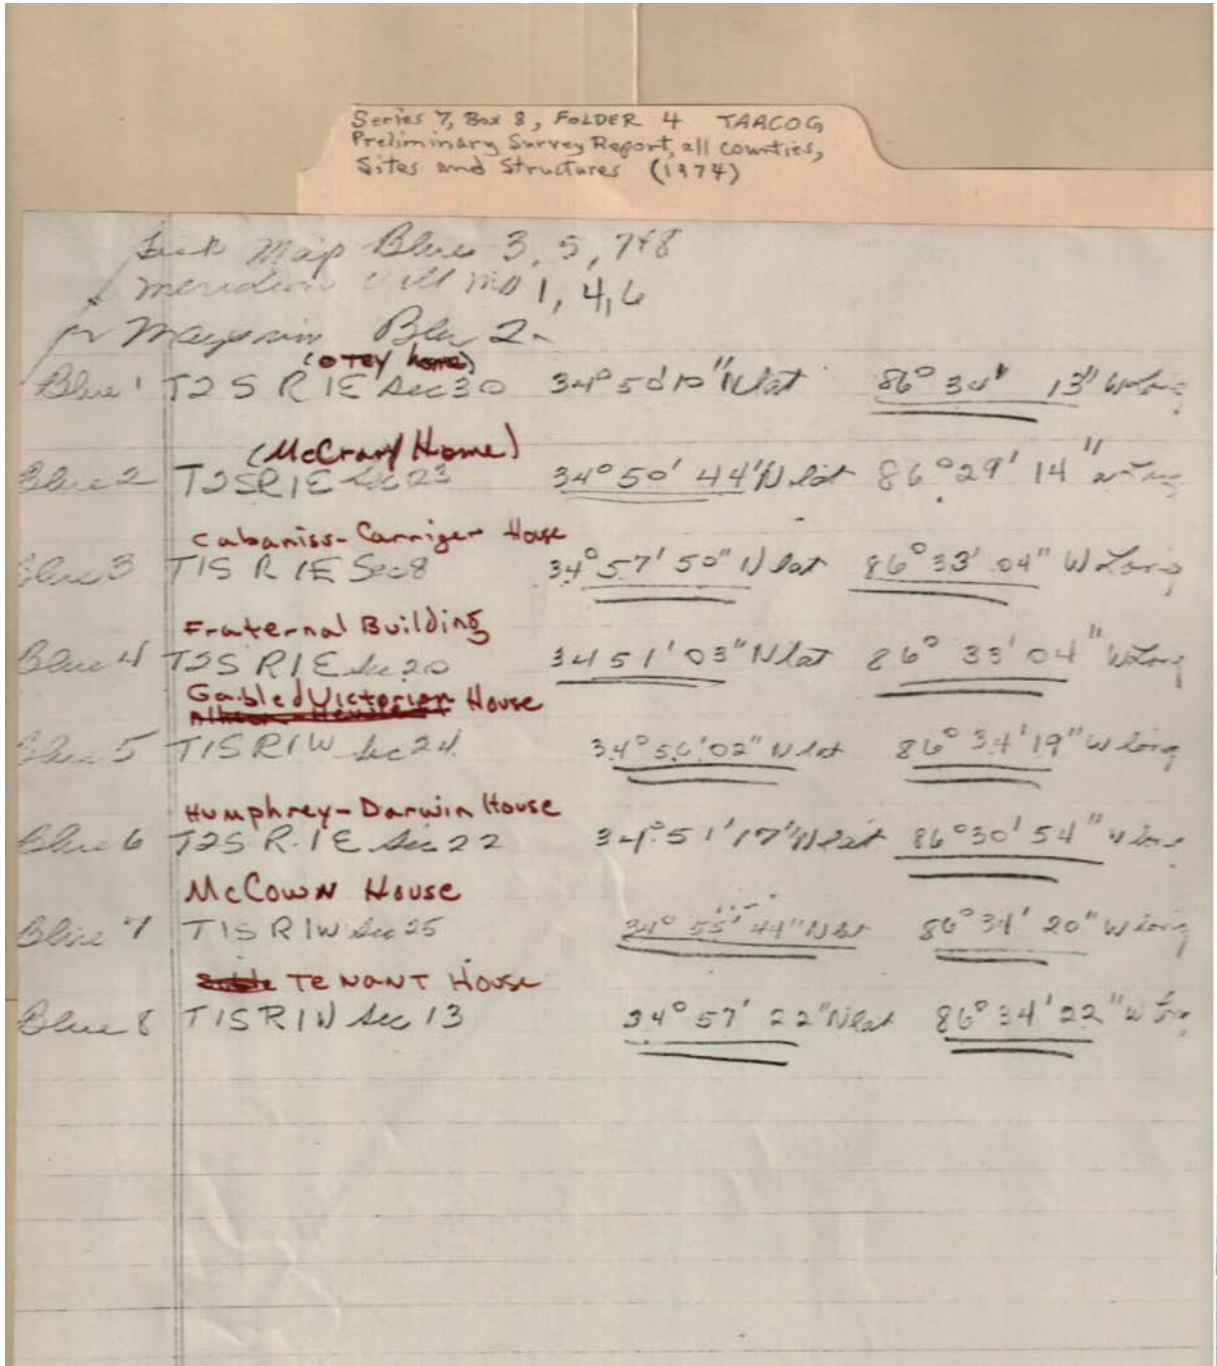 Series 7, Box 8, FOLDER 4 TAACOG
Preliminary Survey Report, all counties,
Sites and Structures (1974)
Map Blues 3, 5, 7+8
1, 4, 6
Blue 2
(OTEY home)
Blue 1 T2S R1E Sec 30 34° 50' 10" N lat 86° 34' 13" W Long
(McCrary Home)
Blue 2 T2SR1E Sec 23 34° 50' 44" N lat 86° 29' 14"
Cabaniss-Carriger House
Blue 3 T1S R1E Sec 8 34° 57' 50" N lat 86° 33' 04" W Long
Fraternal Building
Blue 4 T2S R1E Sec 20 34 51' 03" N lat 86° 33' 04" W Long
Gabled Victorian House
Blue 5 T1S R1W Sec 24 34° 56' 02" N lat 86° 34' 19" W long
Humphrey-Darwin House
Blue 6 T2S R.1E Sec 22 34° 51' 17" N lat 86° 30' 54" W long
McCown House
Blue 7 T1S R1W Sec 25 34° 55' 44" N lat 86° 34' 20" W long
TENANT House
Blue 8 T1S R1W Sec 13 34° 57' 22" N lat 86° 34' 22" W long